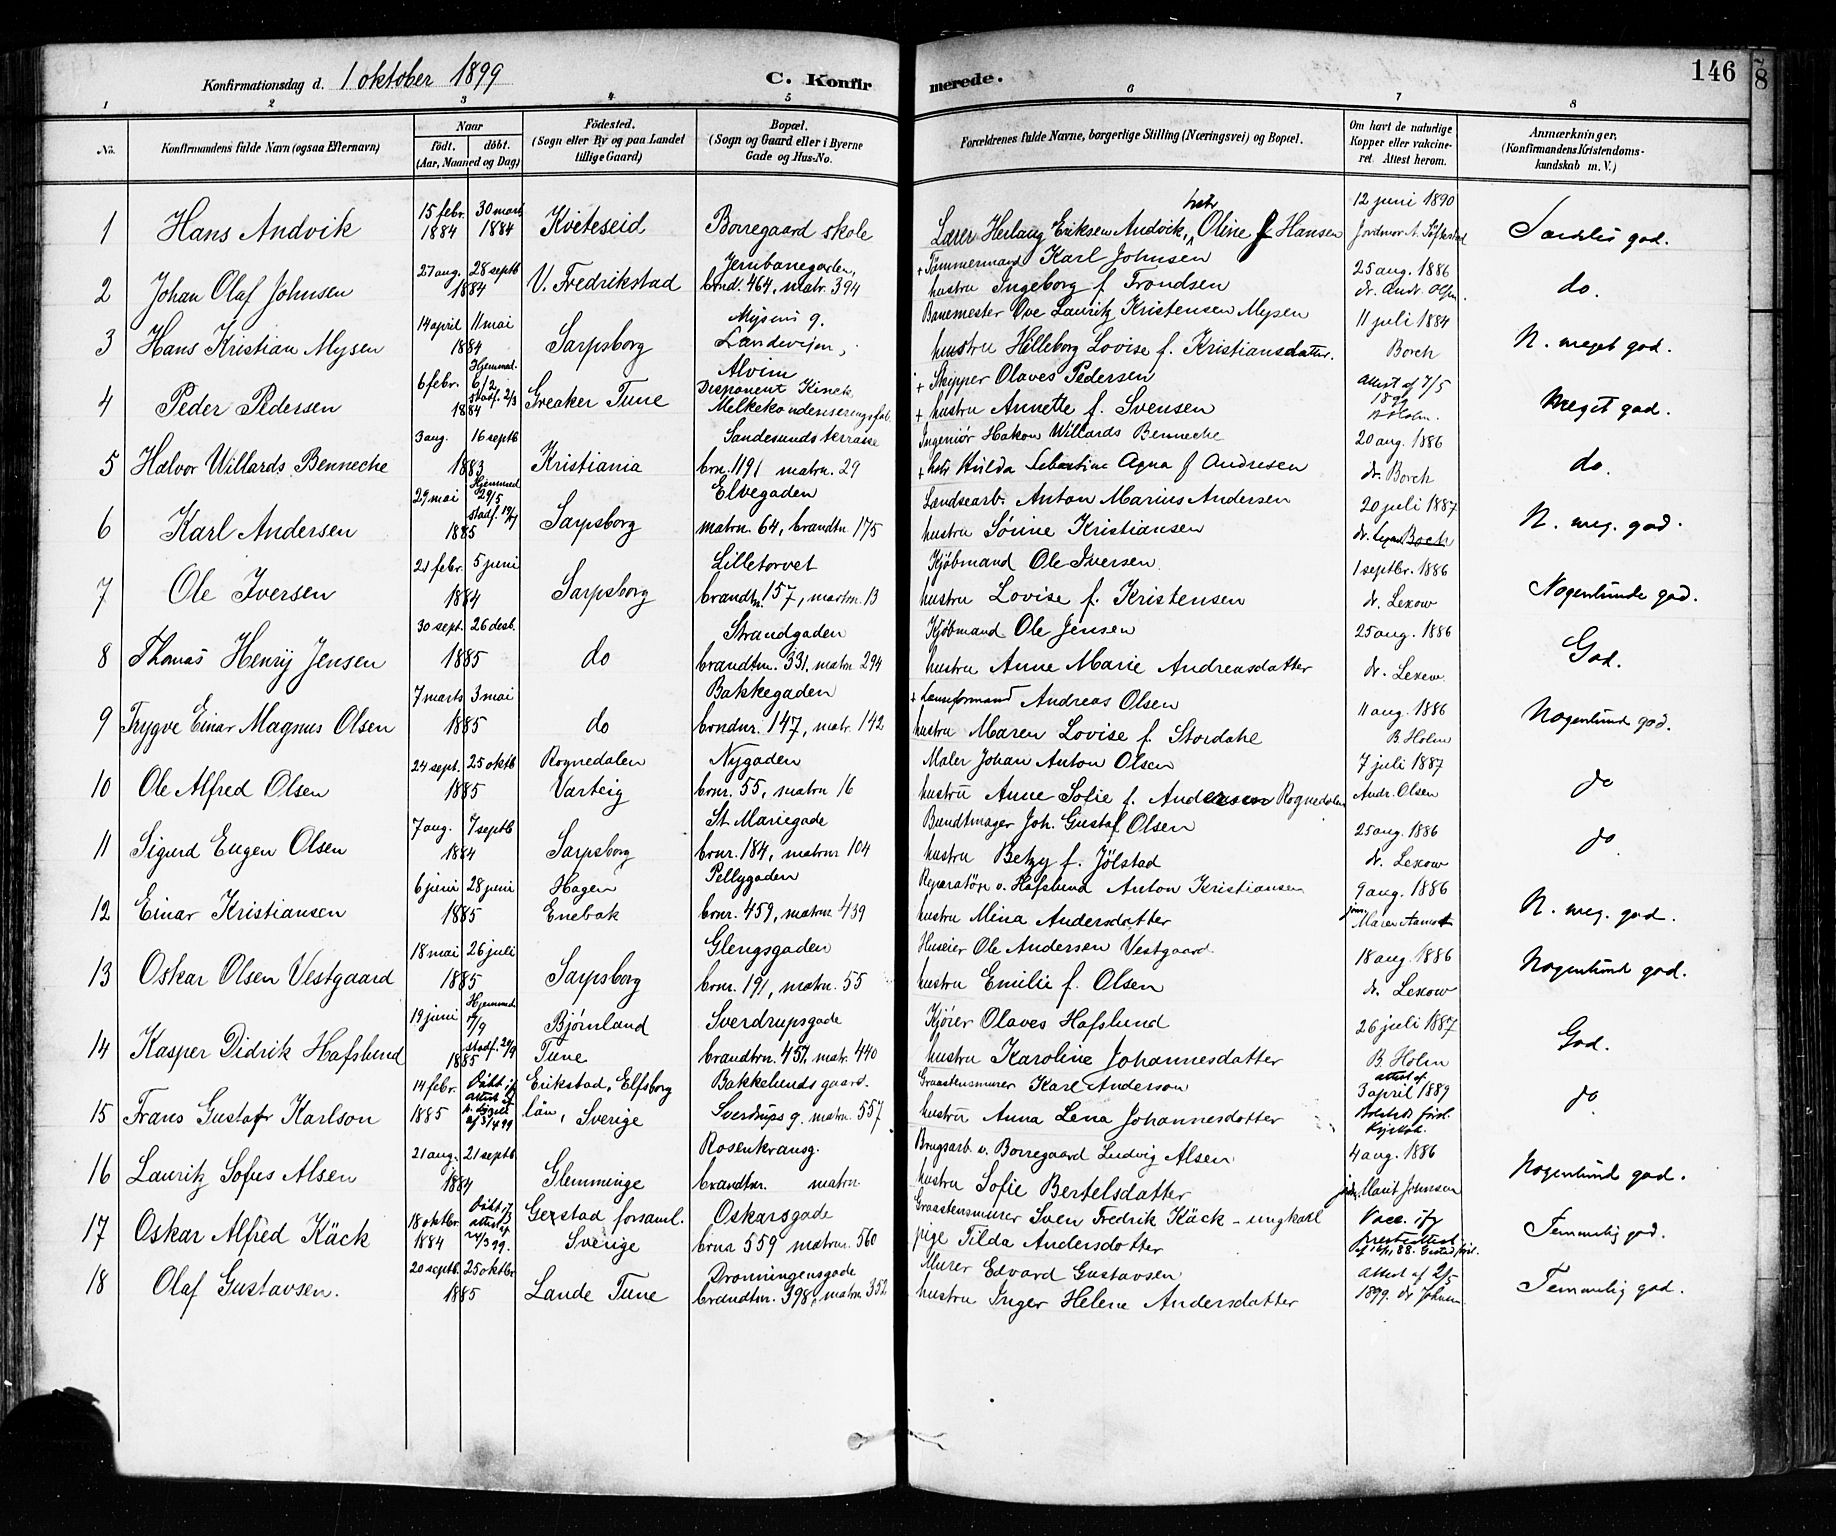 Konfirmationsdag d. 1 oktober 1899 C. Konfirmerede. 146
1 2 3 4 5 6 7 8
No. Konfirmandens fulde Navn (ogsaa Efternavn) Naar födt. döbt. (Aar, Maaned og Dag) Födested. (Sogn eller By og paa Landet tillige Gaard) Bopæl. (Sogn og Gaard eller i Byerne Gade og Hus-No. Forældrenes fulde Navne, borgerlige Stilling (Næringsvei) og Bopæl. Om havt de naturlige Kopper eller vakcineret. Attest herom. Anmærkninger. (Konfirmandens Kristendomskundskab m. V.)
1 Hans Andvik 15 febr. 1884 30 marts 1884 Kviteseid Borregaard skole Lærer Herlaug Eriksen Andvik, hstr Oline f Hansen 12 juni 1890 Særdeles god.
2 Johan Olaf Johnsen 27 aug. 28 septb 1884 V. Fredrikstad Jernbanegaden, brnd. 464, matr. 394 + Tømmermand Karl Johnsen hustru Ingeborg f. Frondsen 25 aug. 1886 dr. Andr. Olsen. do.
3 Hans Kristian Mysen 14 april 11 mai 1884 Sarpsborg Mysens g. Landeveien, Banemester Ove Lauritz Kristensen Mysen hustru Hilleborg Lovise f. Kristiansdatter. 11 juli 1884 Borch N. meget god.
4 Peder Pedersen 6 febr. Hjemmed. 6/2 stadf. 2/3 1884 Greaker Tune Alvim Disponent Kinck Melkekondenseringsfab. + Skipper Olaves Pedersen + hustru Annette f. Svensen Attest af 7/5 1899 B Holm. Meget god.
5 Halvor Willards Bennecke 3 aug. 16 septb 1883 Kristiania Sandesunds terrasse brn. 1191 matrn. 29 Ingeniør Hakon Willards Bennecke + hstr Hulda Sebastine Agna f Andresen 20 aug. 1886 dr. Borch do.
6 Karl Andersen 29 mai Hjemmed 29/5 stadf. 19/7 1885 Sarpsborg Elvegaden matrn. 64, brandtn 175 Landsearb. Anton Marius Andersen hustru Sørine Kristiansen 20 juli 1887 dr. Borch N. meg. god.
7 Ole Iversen 21 febr. 5 juni 1884 Sarpsborg Lilletorvet brandtn. 157, matrn. 13 Kjøbmand Ole Iversen. hustru Lovise f. Kristensen 1 septbr. 1886 dr. Lexow Nogenlunde god.
8 Thomas Henrij Jensen 30 sept. 26 desb. 1885 do Strandgaden brandtnr. 331, matrn 294 Kjøbmand Ole Jensen hustru Anne Marie Andreasdatter 25 aug. 1886 dr. Lexow. God.
9 Trygve Einar Magnus Olsen 7 marts 3 mai 1885 do Bakkegaden brndnr. 147, matr. 142 + Andreas Olsen hustru Maren Lovise f. Stordahl 11 aug. 1886 B Holm Nogenlund god.
10 Ole Alfred Olsen 24 sept. 25 oktb 1885 Rognedalen Varteig Nygaden brnr. 55, matrn 16 Maler Johan Anton Olsen hustru Anne Sofie f. Andersen Rognedalen 7 juli 1887 Andr. Olsen do
11 Sigurd Eugen Olsen 7 aug. 7 septb 1884 Sarpsborg St Mariegade brnr. 184, matrnr 104 Bundtmager Joh. Gustaf Olsen hustru Betzy f. Jölstad 25 aug. 1886 dr. Lexow do
12 Einar Kristiansen 6 juni 28 juni 1885 Hagen Enebak Pellygaden brnr. 459, matrnr 439 Reparatør v. Hafslund Anton Kristiansen hustru Mina Andersdatter 9 aug. 1886 jdm. Maren Aamodt N. meg. god.
13 Oskar Olsen Vestgaard 18 mai 26 juli 1885 Sarpsborg Glengsgaden brnr. 191, matrn. 55 Huseier Ole Andersen Vestgaard. hustru Emilie f. Olsen 18 aug. 1886 dr. Lexow Nogenlund god.
14 Kasper Didrik Hafslund 19 juni Hjemmed /9 stadf. 20/9 1885 Bjørnland Tune Sverdrupsgade brandtnr. 457. matr. 440 Kjører Olaves Hafslund hustru Karoline Johannesdatter 26 juli 1887 B. Holm God.
15 Frans Gustaf Karlson 14 febr. 1885 Döbt if attest af Erikstad, Elfsborg län, Sverige Bakkelundsgaard. Sverdrups g. matrn. 557 Graastensmurer Karl Anderson hustru Anna Lena Johannesdotter attest af 3 april 1889 do
16 Lauritz Sofus Alsen 21 aug. 21 septb 1884 Glemminge Rosenkransg. brandtnr. matrn. Brugsarb. v. Borregaard Ludvig Alsen hustru Sofie Bertelsdatter 4 aug. 1886 jdm. Marit Johnsen Nogenlund god.
17 Oskar Alfred Käck 18 oktbr. 1884 Döbt if attest af 14/3 99. Gerstad forsaml. Sverige Oskarsgade brnr 559 matrn. 560 Graastensmurer Sven Fredrik Käck - ungkarl pige Tilda Andersdotter Vacc. ifg presteattest Temmelig god.
18 Olaf Gustavsen. 20 septb. 25 oktbr 1885 Lande Tune Dronningensgade brandtnr. 398, matrn 352 Murer Edvard Gustavsen hustru Inger Helene Andersdatter Attest af 2/5 1899. dr Johnsen. Temmelig god.